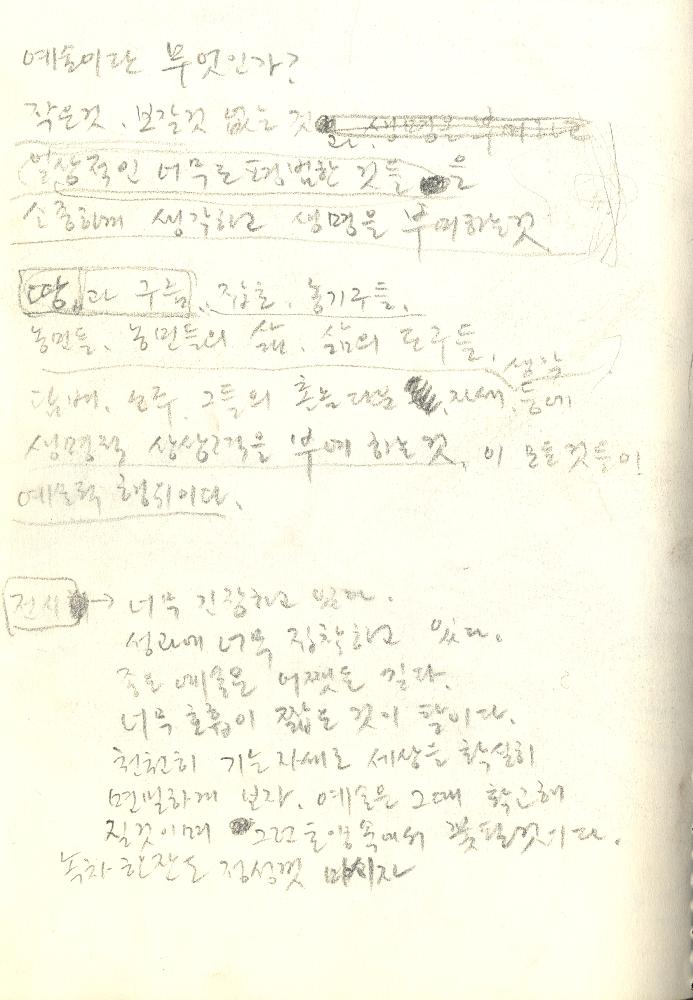 예술이란 무엇인가?
작은것, 보잘것 없는 것
일상적인 너무도 평범한 것들을
소중하게 생각하고 생명을 부여하는것
땅과 구름, 잡초, 농기구들,
농민들, 농민들의 삶, 삶의 도구들,
생활
담배, 소주, 그들의 흔들 자세, 등에
생명적 상상력을 부여 하는것, 이 모든것들이
예술적 행위이다.
전시 → 너무 긴장하고 있다.
성과에 너무 집착하고 있다.
예술은 어쨌든 길다.
너무 호흡이 짧은 것이 탈이다.
천천히 기는자세로 세상을 확실히
면밀하게 보자. 예술은 그때 확고해
질것이며 그런 속에서 꽃필것이다.
녹차 한잔도 정성껏 마시자